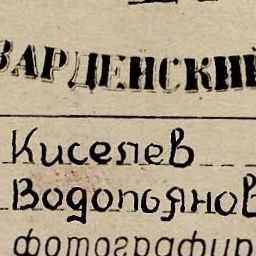 ВАРДЕНСКИЙ
Киселев
Водопьянов
фотографир